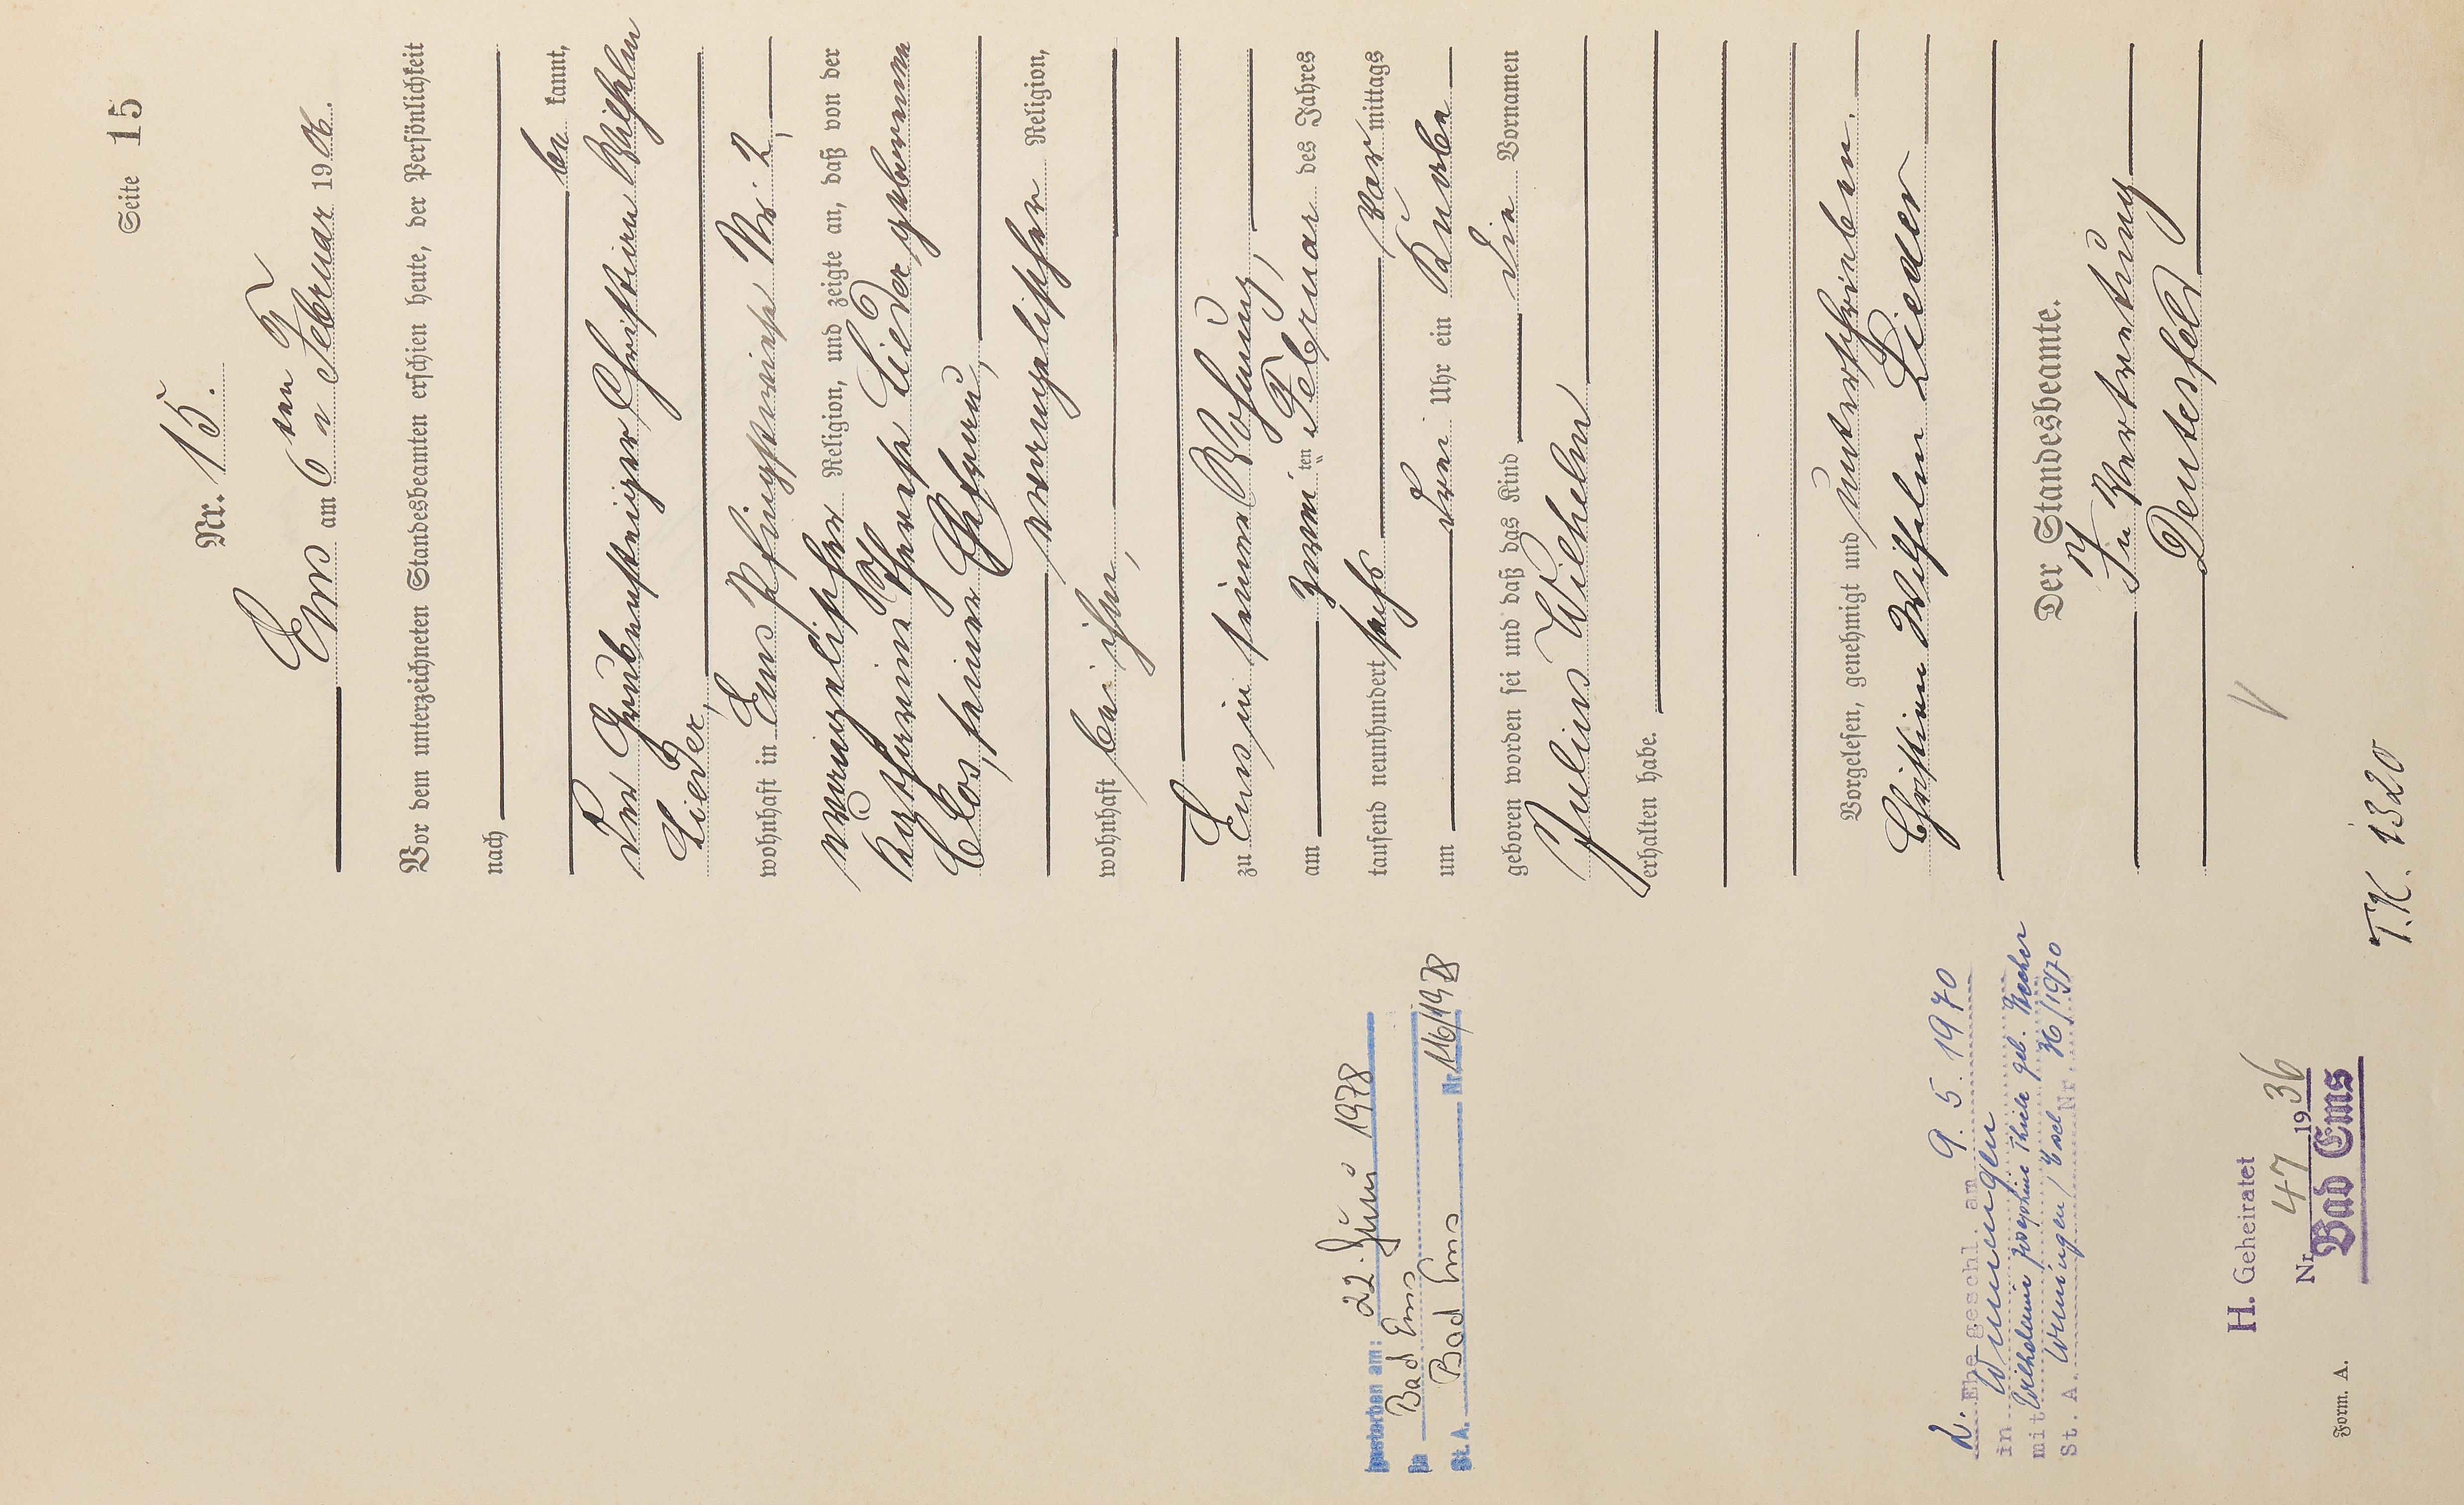 Seite 15
Nr. 15.
Ems am 6ten Februar 1906.
Vor dem unterzeichneten Standesbeamten erschien heute, der Persönlichkeit
nach
be kannt,
der Grubensteiger Christian Wilhelm
Lieder,
wohnhaft in Ems Pfingstwiese Nr. 2,
evangelischer Religion, und zeigte an, daß von der
Therese Lieder geborenen
Clos, seiner Ehefrau,
evangelischer Religion,
wohnhaft bei ihm,
zu Ems in seiner Wohnung,
am zweiten Februar des Jahres
tausend neunhundert sechs Vormittags
um drei Uhr ein Knabe
geboren worden sei und daß das Kind die Vornamen
Julius Wilhelm
erhalten habe.
Vorgelesen, genehmigt und unterschrieben.
Christian Wilhelm Lieder
Der Standesbeamte.
In Vertretung
Deutesfeld
gestorben am: 22. Juni 1978
in Bad Ems
St. A. Bad Ems Nr. 116/1978
2. Ehe geschl. am 9. 5. 1970
in Winningen
mit geb. Becker
St. A. Winningen / Mosel Nr. 36/1970
H. Geheiratet
Nr. 47 1936
Bad Ems
Form. A.
T.K. 1320